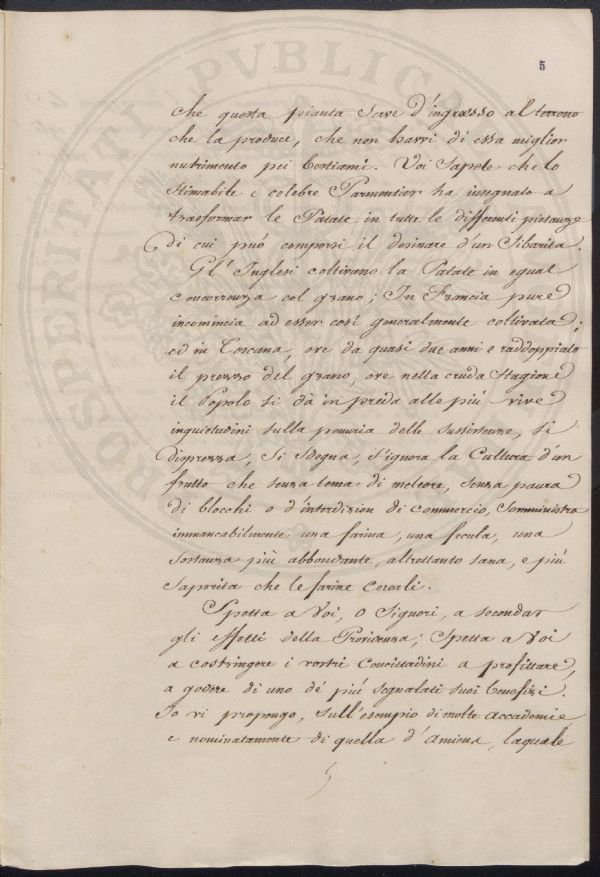 5
PROSPERITATI PVBLICAE
che questa pianta serve d'ingrasso al terreno
che la produce, che non havvi di essa miglior
nutrimento pei bestiami. Voi sapete che lo
stimabile e celebre Parmentier ha insegnato a
trasformar le Patate in tutte le differenti pietanze
di cui può comporsi il desinare d'un Sibarita.
Gl'Inglesi coltivano la Patate in egual
concorrenza col grano; In Francia pure
incomincia ad esser così generalmente coltivata;
ed in Toscana, ove da quasi due anni è raddoppiato
il prezzo del grano, ove nella cruda stagione
il Popolo si dà in preda alle più vive
inquietudini sulla penuria delle sussistenze, si
disprezza, si sdegna, s'ignora la Cultura d'un
frutto che senza tema di meteore, senza paura
di blocchi o d'interdizion di commercio, somministra
immancabilmente una farina, una fecula, una
sostanza più abbondante, altrettanto sana, e più
saporita che le farine cereali.
Spetta a Voi, o Signori, a secondar
gli effetti della Provvidenza; Spetta a Voi
a costringere i vostri Concittadini a profittare,
a godere di uno dé più segnalati suoi benefizi.
Io vi propongo, sull'esempio di molte Accademie
e nominatamente di quella d'Amiens, laquale